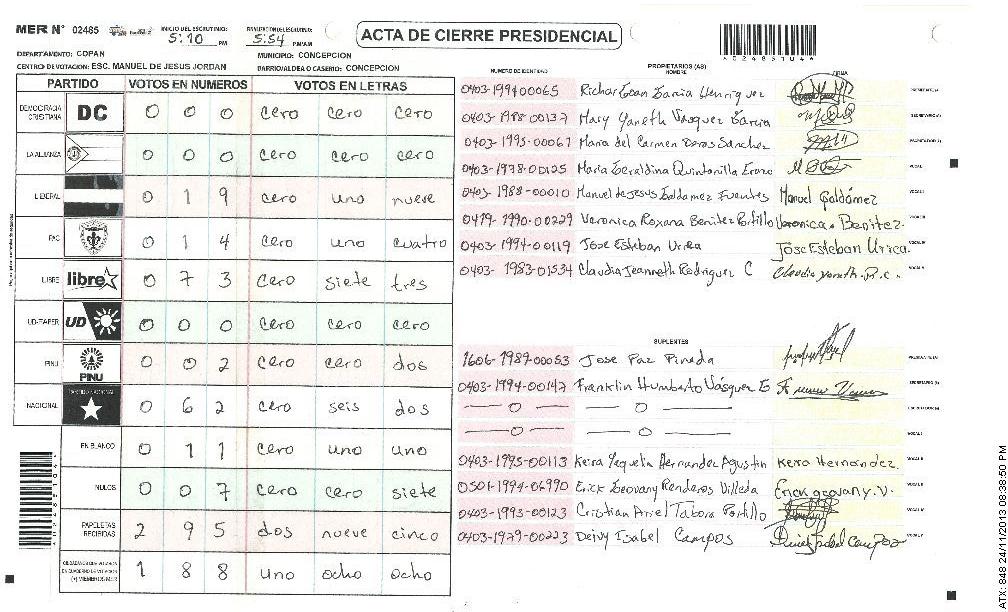 MER N° 02485
INICIO DEL ESCRUTINIO: 5:10 PM
FINALIZACION DEL ESCRUTINIO: 5:54 PM/AM
ACTA DE CIERRE PRESIDENCIAL
DEPARTAMENTO: COPAN
MUNICIPIO: CONCEPCION
CENTRO DE VOTACION: ESC. MANUEL DE JESUS JORDAN
BARRIO/ALDEA O CASERIO: CONCEPCION
PARTIDO VOTOS EN NUMEROS VOTOS EN LETRAS
DEMOCRACIA CRISTIANA DC 0 0 0 cero cero cero
LA ALIANZA 0 0 0 cero cero cero
LIBERAL 0 1 9 cero uno nueve
PAC 0 1 4 cero uno cuatro
LIBRE libre 0 7 3 cero siete tres
UD-FAPER UD 0 0 0 cero cero cero
PINU PINU 0 0 2 cero cero dos
NACIONAL PARTIDO NACIONAL 0 6 2 cero seis dos
EN BLANCO 0 1 1 cero uno uno
NULOS 0 0 7 cero cero siete
PAPELETAS RECIBIDAS 2 9 5 dos nueve cinco
CIUDADANOS QUE VOTARON EN CUADERNO DE VOTACION (+) MIEMBROS MER 1 8 8 uno ocho ocho
PROPIETARIOS (AS)
NUMERO DE IDENTIDAD NOMBRE FIRMA
Henriquez PRESIDENTE(A)
0403-1988-00137 Mary Yaneth Vásquez García SECRETARIO(A)
0403-1995-00067 Maria del Carmen Deras Sanchez ESCRUTADOR(A)
0403-1978-00125 Maria Geraldina Quintanilla VOCAL I
0403-1988-00010 Manuel de Jesus Galdamez Fuentes Manuel Galdámez VOCAL II
0419-1990-00229 Veronica Roxana Benitez Portillo Veronica Benitez. VOCAL III
0403-1994-00119 Jose Esteban Urica José Esteban Urica. VOCAL IV
0403-1983-01534 Claudia Jeanneth Rodriguez C VOCAL V
SUPLENTES
1606-1987-00053 Jose Paz Pineda PRESIDENTE(A)
0403-1994-00147 Franklin Humberto Vásquez SECRETARIO(A)
— 0 — — 0 — ESCRUTADOR(A)
— 0 — — 0 — VOCAL I
0403-1995-00113 Keira Yaquelin Hernandez Agustin Keira Hernandez. VOCAL II
0501-1994-06990 Erick Geovany Renderos Villeda Erick geovany. V. VOCAL III
0403-1993-00123 Cristian Ariel Tabora Portillo VOCAL IV
0403-1979-00223 Deivy Isabel Campos VOCAL V
ATX: 848 24/11/2013 08:38:50 PM